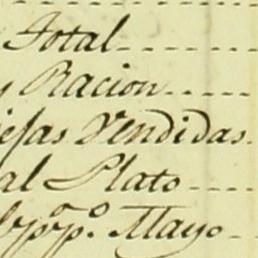 Total
Racion
Vendidas
al Plato
Mayo